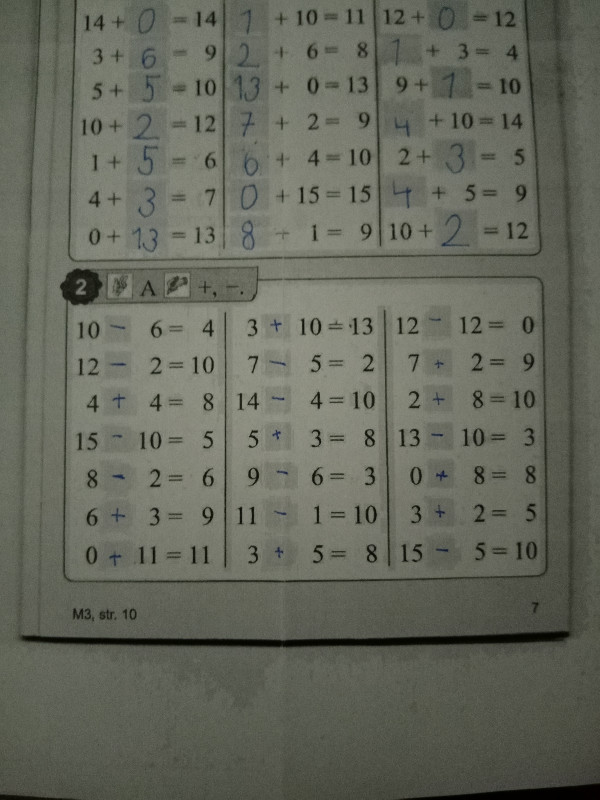 14 + 0 = 14 1 + 10 = 11 12 + 0 = 12
3 + 6 = 9 2 + 6 = 8 1 + 3 = 4
5 + 5 = 10 13 + 0 = 13 9 + 1 = 10
10 + 2 = 12 7 + 2 = 9 4 + 10 = 14
1 + 5 = 6 6 + 4 = 10 2 + 3 = 5
4 + 3 = 7 0 + 15 = 15 4 + 5 = 9
0 + 13 = 13 8 + 1 = 9 10 + 2 = 12
2 A +, −.
10 − 6 = 4 3 + 10 = 13 12 − 12 = 0
12 − 2 = 10 7 − 5 = 2 7 + 2 = 9
4 + 4 = 8 14 − 4 = 10 2 + 8 = 10
15 − 10 = 5 5 + 3 = 8 13 − 10 = 3
8 − 2 = 6 9 − 6 = 3 0 + 8 = 8
6 + 3 = 9 11 − 1 = 10 3 + 2 = 5
0 + 11 = 11 3 + 5 = 8 15 − 5 = 10
M3, str. 10 7